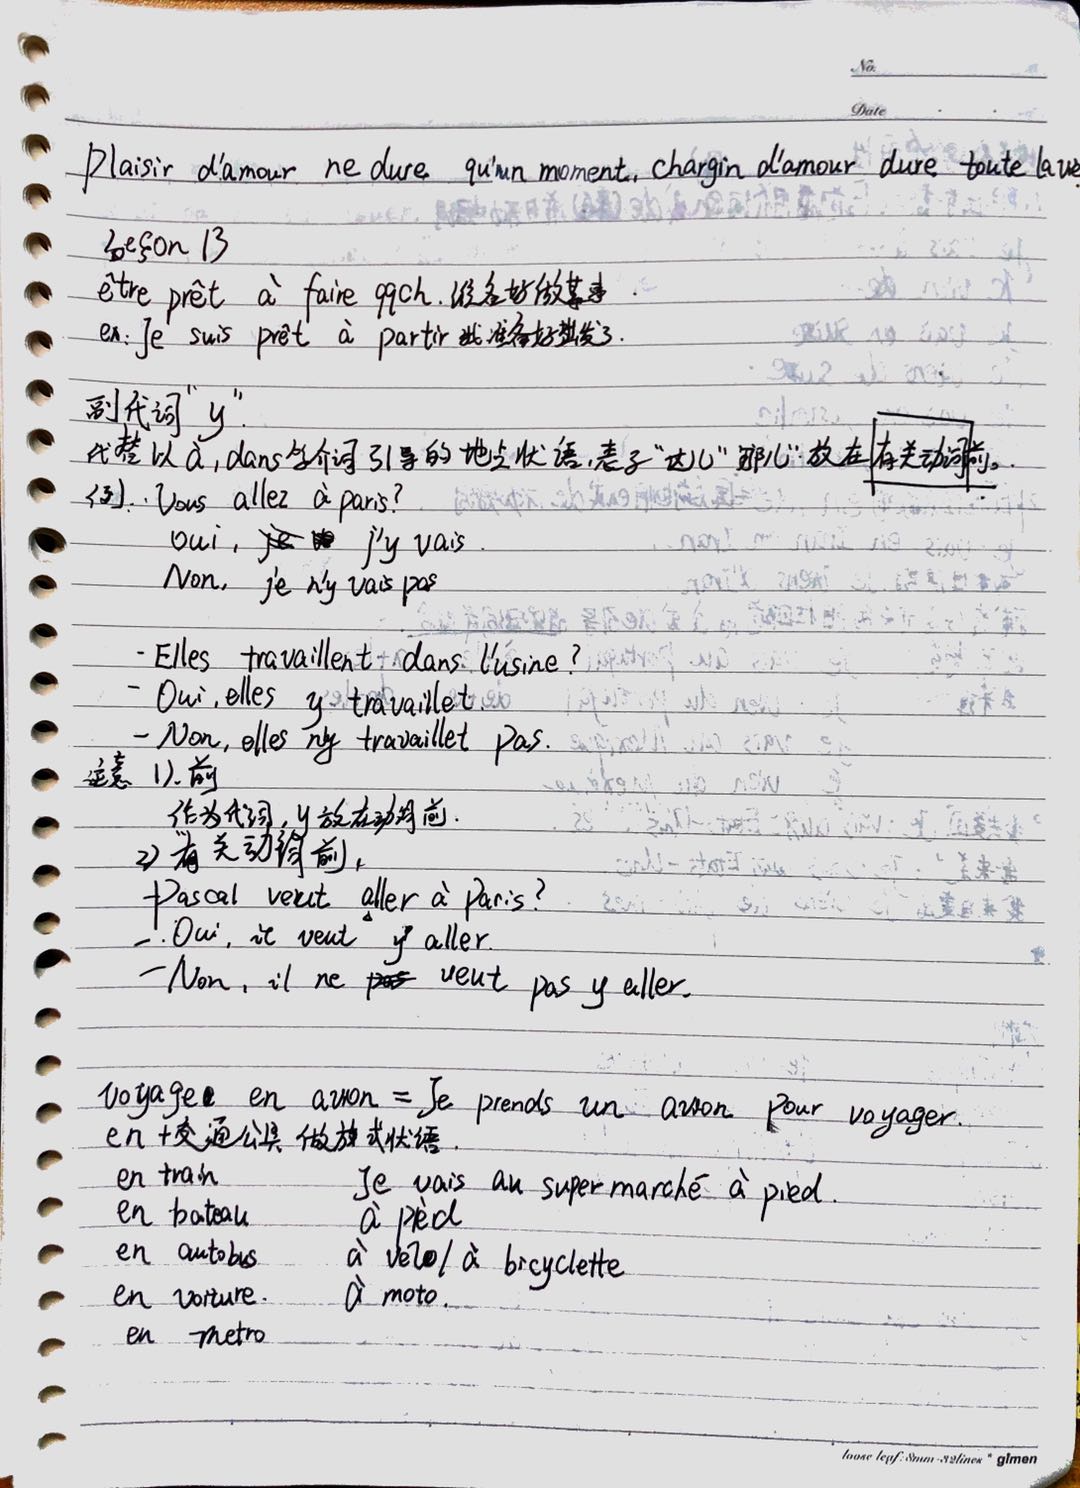 No.
Date
Plaisir d'amour ne dure qu'un moment, chargin d'amour dure toute la vie.
Leçon 13
être prêt à faire qqch. 准备好做某事.
ex: Je suis prêt à partir 我准备好出发了.
副代词"y".
代替以à, dans等介词引导的地点状语,表示"这儿""那儿"放在有关动词前。
例:. Vous allez à paris?
Oui, j'y vais.
Non, je n'y vais pas
- Elles travaillent dans l'usine?
- Oui, elles y travaillet.
- Non, elles n'y travaillet pas.
注意 1). 前
作为代词, y 放在动词前.
2) 有关动词前,
- Pascal veut aller à Paris?
- Oui, il veut y aller.
- Non, il ne veut pas y aller.
voyager en avion = Je prends un avion pour voyager.
en + 交通公具 做放式状语.
en train Je vais au supermarché à pied.
en bateau à pièd
en autobus à vélo / à bicyclette
en voiture. à moto.
en metro
loose leaf: 8mm·32lines * gimen